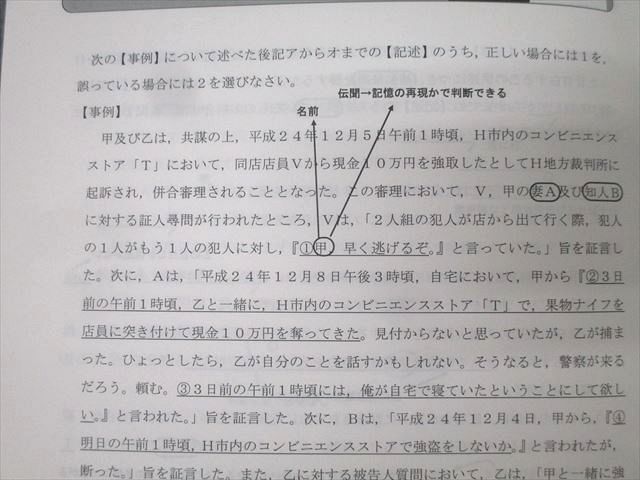 次の【事例】について述べた後記アからオまでの【記述】のうち，正しい場合には１を，
誤っている場合には２を選びなさい。
伝聞→記憶の再現かで判断できる
【事例】
名前
甲及び乙は，共謀の上，平成２４年１２月５日午前１時頃，Ｈ市内のコンビニエンス
ストア「Ｔ」において，同店店員Ｖから現金１０万円を強取したとしてＨ地方裁判所に
起訴され，併合審理されることとなった。この審理において，Ｖ，甲の妻Ａ及び知人Ｂ
に対する証人尋問が行われたところ，Ｖは，「２人組の犯人が店から出て行く際，犯人
の１人がもう１人の犯人に対し，『①甲，早く逃げるぞ。』と言っていた。」旨を証言し
た。次に，Ａは，「平成２４年１２月８日午後３時頃，自宅において，甲から『②３日
前の午前１時頃，乙と一緒に，Ｈ市内のコンビニエンスストア「Ｔ」で，果物ナイフを
店員に突き付けて現金１０万円を奪ってきた。見付からないと思っていたが，乙が捕ま
った。ひょっとしたら，乙が自分のことを話すかもしれない。そうなると，警察が来る
だろう。頼む。③３日前の午前１時頃には，俺が自宅で寝ていたということにして欲し
い。』と言われた。」旨を証言した。次に，Ｂは，「平成２４年１２月４日，甲から，『④
明日の午前１時頃，Ｈ市内のコンビニエンスストアで強盗をしないか。』と言われたが，
断った。」旨を証言した。また，乙に対する被告人質問において，乙は，「甲と一緒に強